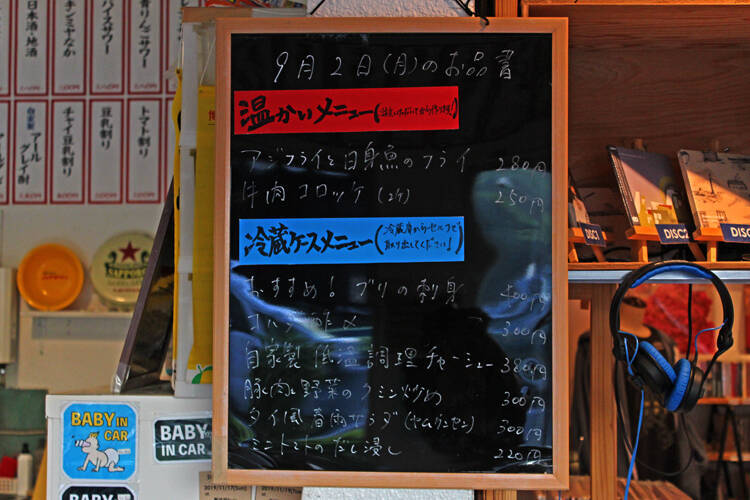 9月2日(月)のお品書
温かいメニュー(注文いただいてから作ります!)
アジフライと白身魚のフライ 280円
牛肉コロッケ(2ケ) 250円
冷蔵ケースメニュー(冷蔵庫からセルフで取り出してください!)
おすすめ! ブリの刺身 500円
コハダ酢〆 300円
自家製 低温調理チャーシュー 380円
豚肉と野菜のクミン炒め 300円
タイ風春雨サラダ(ヤムウンセン) 300円
ミニトマトのだし浸し 220円
日本酒・地酒
キンミヤなか
バイスサワー
青りんごサワー
自家製 アールグレイ割
チャイ豆乳割り
豆乳割り
トマト割り
SAPPORO
BABY IN CAR
BABY IN CAR
BABY
2019/11/17(Sun)
DISC1
DISC2
DISC